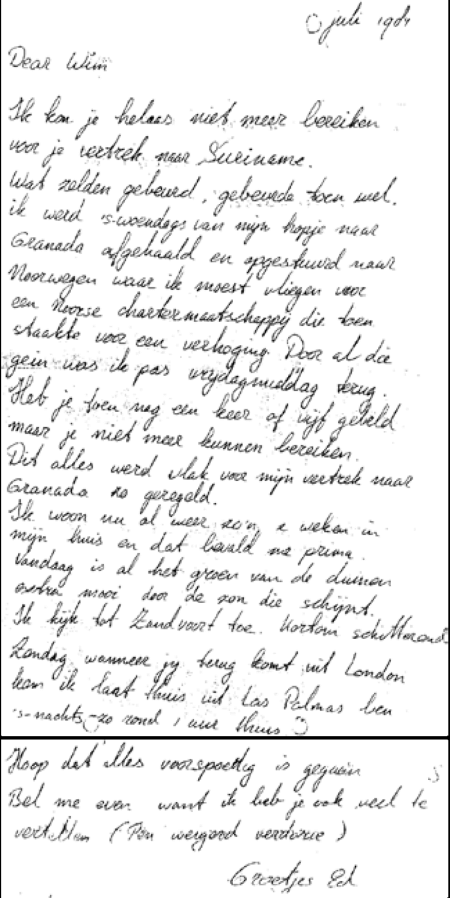 juli 1984
Dear Wim
Ik kon je helaas niet meer bereiken
voor je vertrek naar Suriname.
Wat zelden gebeurd, gebeurde toen wel.
ik werd 's-woendags van mijn hopje naar
Granada afgehaald en opgestuurd naar
Noorwegen waar ik moest vliegen voor
een Noorse chartermaatschappij die toen
staakte voor een verhoging. Door al die
gein was ik pas vrijdagmiddag terug.
Heb je toen nog een keer of vijf gebeld
maar je niet meer kunnen bereiken.
Dit alles werd vlak voor mijn vertrek naar
Granada zo geregeld.
Ik woon nu al weer zo'n weken in
mijn huis en dat bevald me prima.
Vandaag is al het groen van de duinen
extra mooi door de zon die schijnt.
Ik kijk tot Zandvoort toe. Kortom schitterend
Zondag wanneer jij terug komt uit London
kom ik laat thuis uit Las Palmas ben
's-nachts zo rond 1 uur thuis
Hoop dat alles voorspoedig is gegaan
Bel me even want ik heb je ook veel te
vertellen (Pen weigerd verdorie)
Groetjes Ed